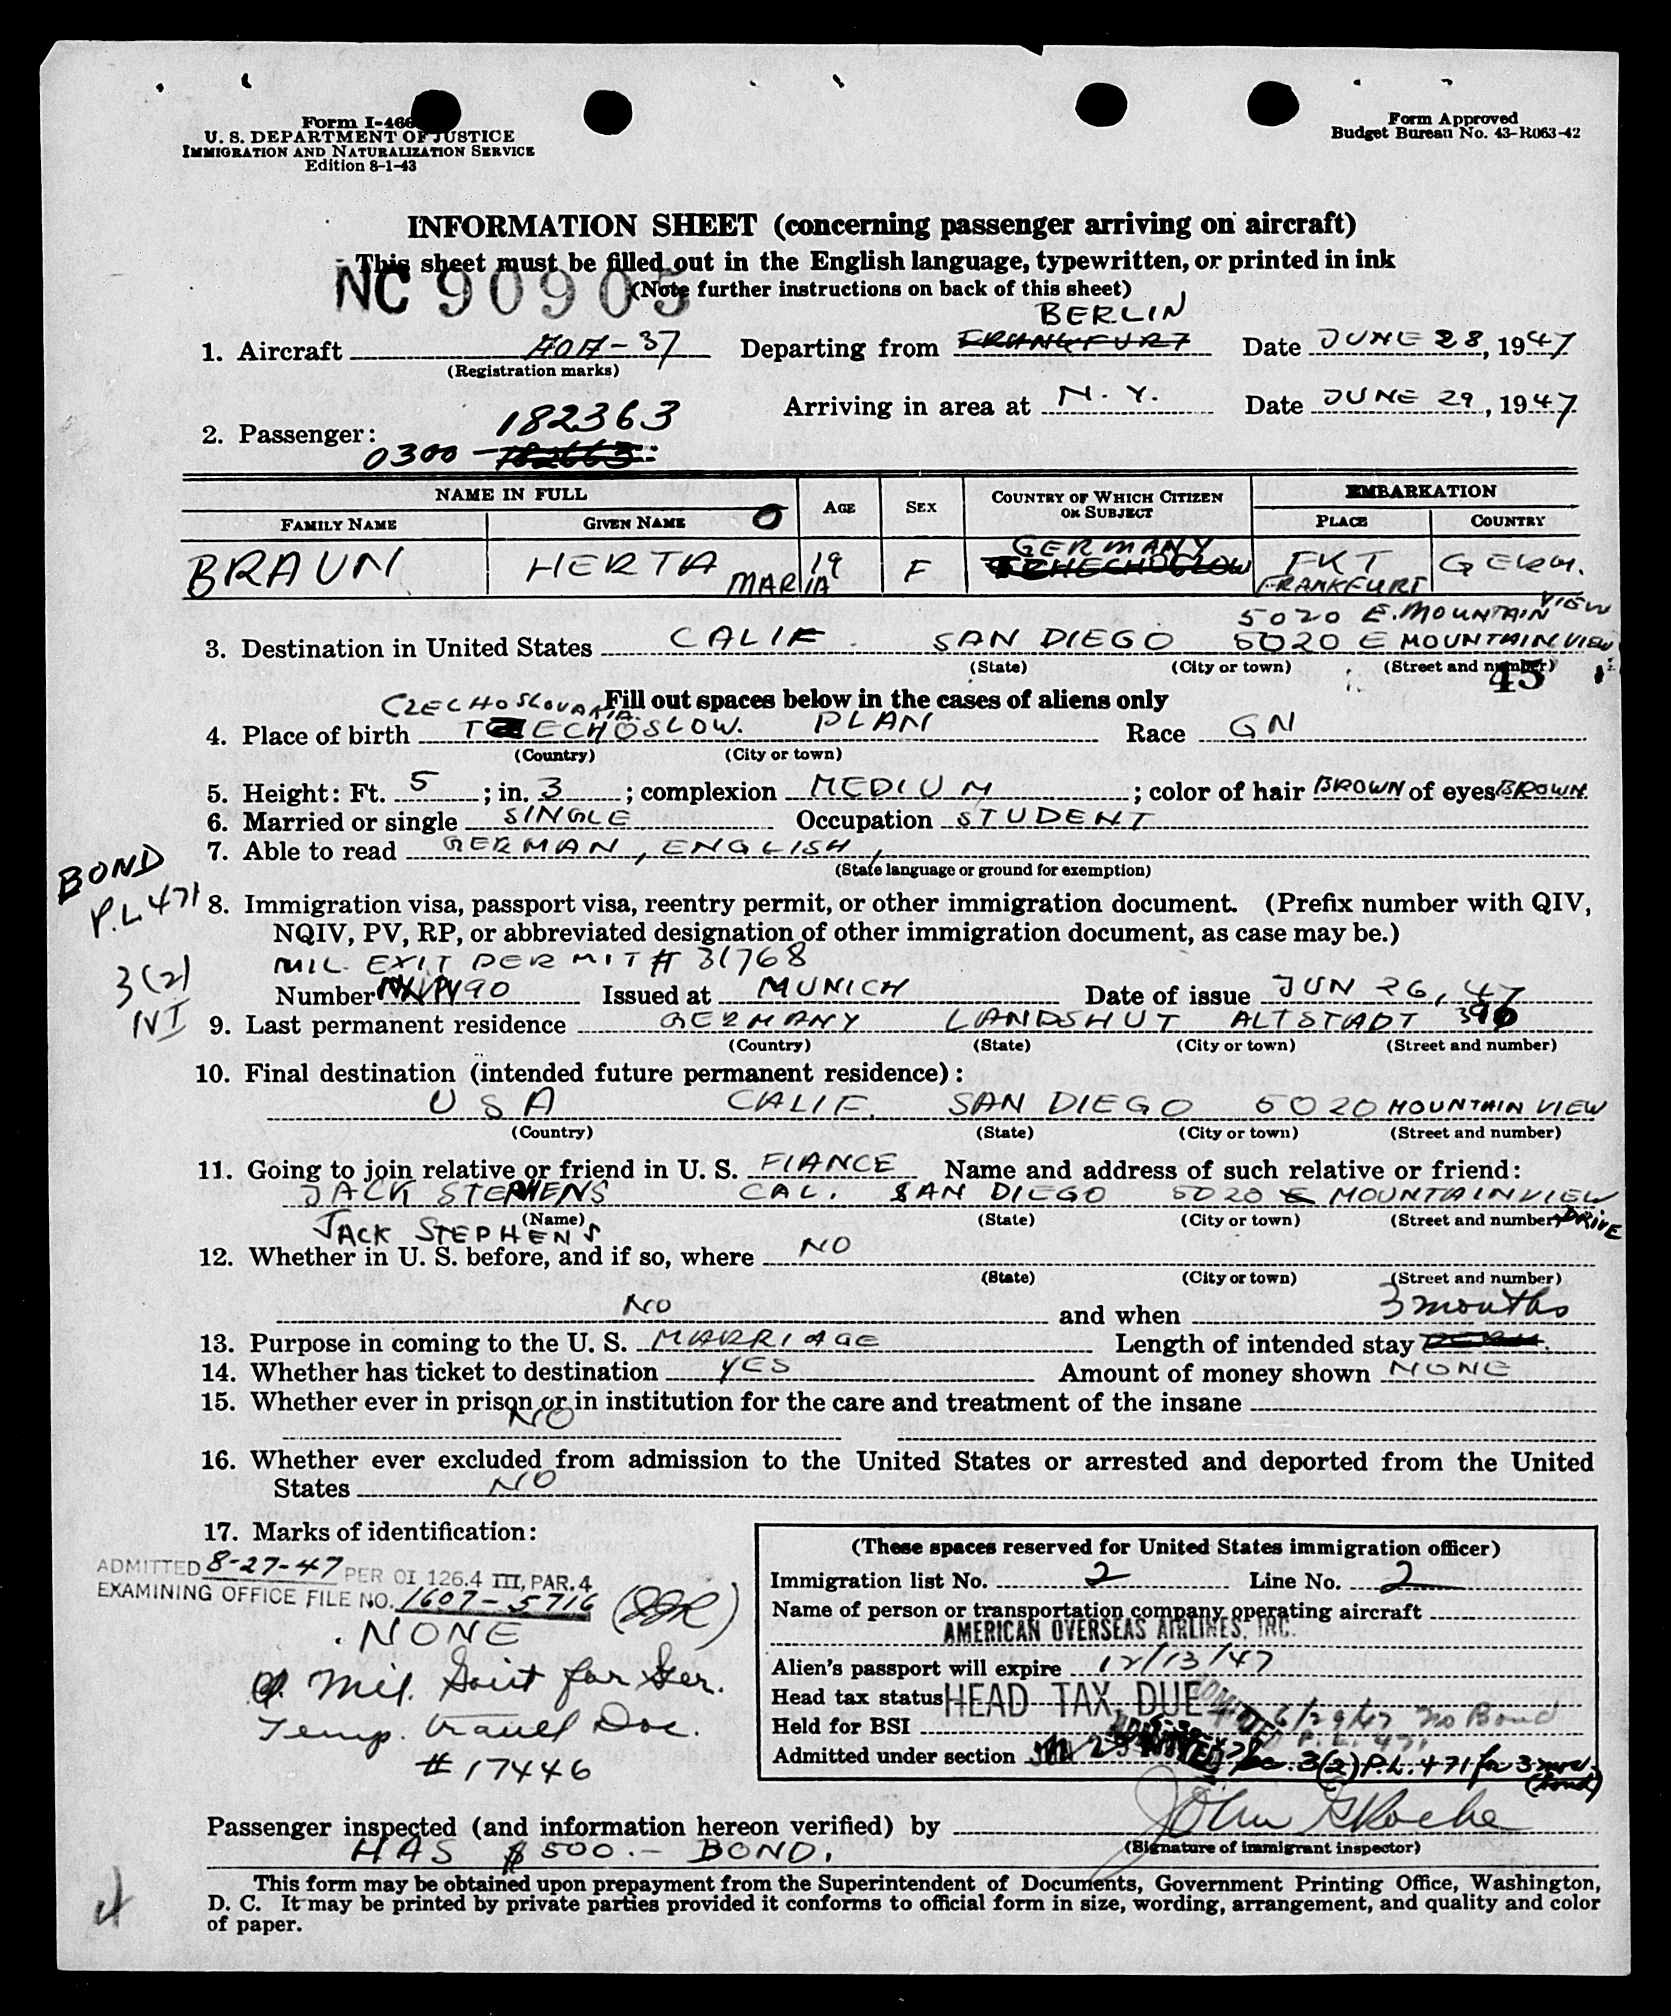 Form I-466
U. S. DEPARTMENT OF JUSTICE
IMMIGRATION AND NATURALIZATION SERVICE
Edition 8-1-43
Form Approved
Budget Bureau No. 43-R063-42
INFORMATION SHEET (concerning passenger arriving on aircraft)
This sheet must be filled out in the English language, typewritten, or printed in ink
NC 90905
(Note further instructions on back of this sheet)
BERLIN
1. Aircraft AOA-37 Departing from FRANKFURT Date JUNE 28, 1947
(Registration marks)
Arriving in area at N.Y. Date JUNE 29, 1947
182363
2. Passenger:
0300 -
NAME IN FULL AGE SEX COUNTRY OF WHICH CITIZEN OR SUBJECT EMBARKATION
FAMILY NAME GIVEN NAME O PLACE COUNTRY
GERMANY
BRAUN HERTA 19 F TCHECHOSLOW FKT GERM.
MARIA FRANKFURT
5020 E. MOUNTAIN VIEW
3. Destination in United States CALIF. SAN DIEGO 5020 E MOUNTAIN VIEW
(State) (City or town) (Street and number)
45
Fill out spaces below in the cases of aliens only
CZECHOSLOVAKIA.
4. Place of birth ECHOSLOW. PLAN Race GN
(Country) (City or town)
5. Height: Ft. 5; in. 3; complexion MEDIUM; color of hair BROWN of eyes BROWN
6. Married or single SINGLE Occupation STUDENT
7. Able to read GERMAN, ENGLISH,
(State language or ground for exemption)
BOND
P.L 471
8. Immigration visa, passport visa, reentry permit, or other immigration document. (Prefix number with QIV,
NQIV, PV, RP, or abbreviated designation of other immigration document, as case may be.)
MIL. EXIT PERMIT # 31768
3(2)
NI
Number 90 Issued at MUNICH Date of issue JUN 26, 47
9. Last permanent residence GERMANY LANDSHUT ALTSTADT 396
(Country) (State) (City or town) (Street and number)
10. Final destination (intended future permanent residence):
USA CALIF. SAN DIEGO 5020 MOUNTAIN VIEW
(Country) (State) (City or town) (Street and number)
11. Going to join relative or friend in U. S. FIANCE Name and address of such relative or friend:
JACK STEPHENS CAL. SAN DIEGO 5020 E MOUNTAIN VIEW
(Name) (State) (City or town) (Street and number) DRIVE
JACK STEPHENS
12. Whether in U. S. before, and if so, where NO
(State) (City or town) (Street and number)
NO and when
3 months
13. Purpose in coming to the U. S. MARRIAGE Length of intended stay
14. Whether has ticket to destination YES Amount of money shown NONE
15. Whether ever in prison or in institution for the care and treatment of the insane
NO
16. Whether ever excluded from admission to the United States or arrested and deported from the United
States NO
17. Marks of identification:
ADMITTED 8-27-47 PER OI 126.4 III, PAR. 4
EXAMINING OFFICE FILE NO. 1607-5716
. NONE
Mil. Govt for Ger.
Temp. travel Doc.
# 17446
(These spaces reserved for United States immigration officer)
Immigration list No. 2 Line No. 2
Name of person or transportation company operating aircraft
AMERICAN OVERSEAS AIRLINES, INC.
Alien's passport will expire 12/13/47
Head tax status HEAD TAX DUE
Held for BSI 6/29/47 No Bond
P.L. 471
Admitted under section 3(2) P.L. 471 for 3 mos.
(bond)
Passenger inspected (and information hereon verified) by John G Roche
(Signature of immigrant inspector)
HAS $ 500.- BOND.
This form may be obtained upon prepayment from the Superintendent of Documents, Government Printing Office, Washington,
D. C. It may be printed by private parties provided it conforms to official form in size, wording, arrangement, and quality and color
of paper.